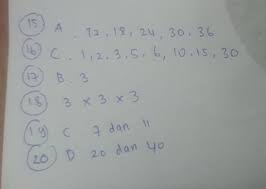 15 A. 12, 18, 24, 30, 36
16 C. 1, 2, 3, 5, 6, 10, 15, 30
17 B. 3
18 3 x 3 x 3
19 C 7 dan 11
20 D 20 dan 40